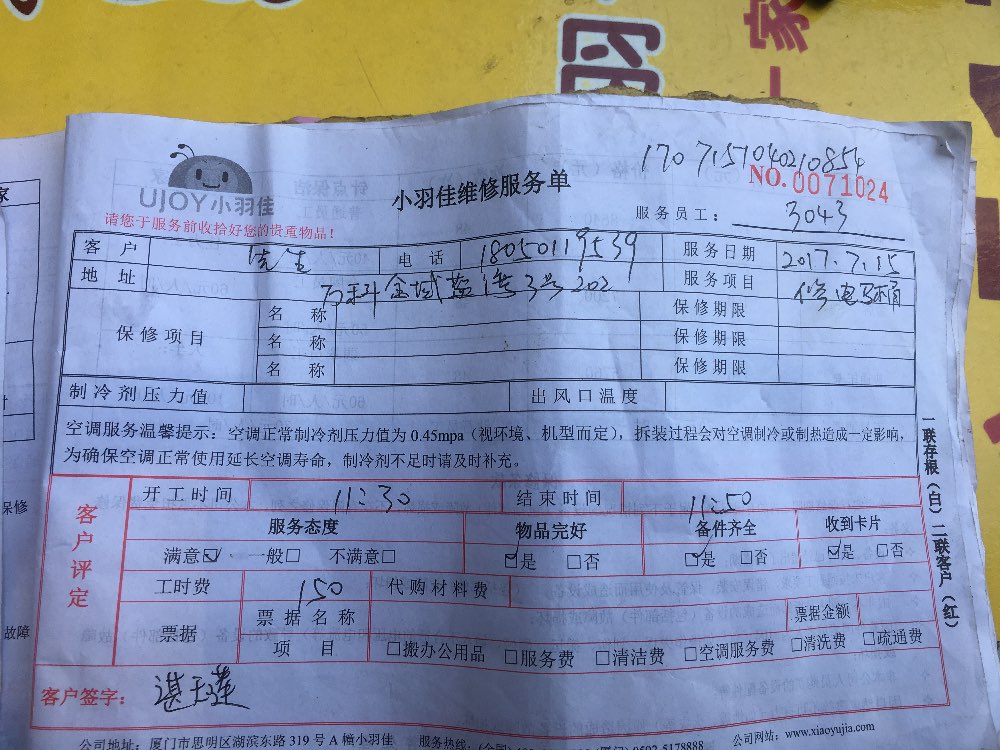 一家
家
1707151040210854
NO.0071024
UJOY小羽佳
小羽佳维修服务单
请您于服务前收拾好您的贵重物品！
服务员工： 3043
客户 先生 电话 18050119539 服务日期 2017.7.15
地址 万科金域蓝湾3号202 服务项目 修电马桶
保修项目 名称 保修期限
名称 保修期限
名称 保修期限
制冷剂压力值 出风口温度
空调服务温馨提示：空调正常制冷剂压力值为0.45mpa（视环境、机型而定），拆装过程会对空调制冷或制热造成一定影响，
为确保空调正常使用延长空调寿命，制冷剂不足时请及时补充。
一联存根（白）二联客户（红）
客户评定
开工时间 11:30 结束时间 11:50
服务态度 物品完好 备件齐全 收到卡片
满意☑ 一般□ 不满意□ ☑是 □否 ☑是 □否 ☑是 □否
工时费 150 代购材料费
票据 票据名称 票据金额
项目 □搬办公用品 □服务费 □清洁费 □空调服务费 □清洗费 □疏通费
客户签字：
保修
故障
公司地址：厦门市思明区湖滨东路319号A幢小羽佳 服务热线： 0592-5178888 公司网站：www.xiaoyujia.com